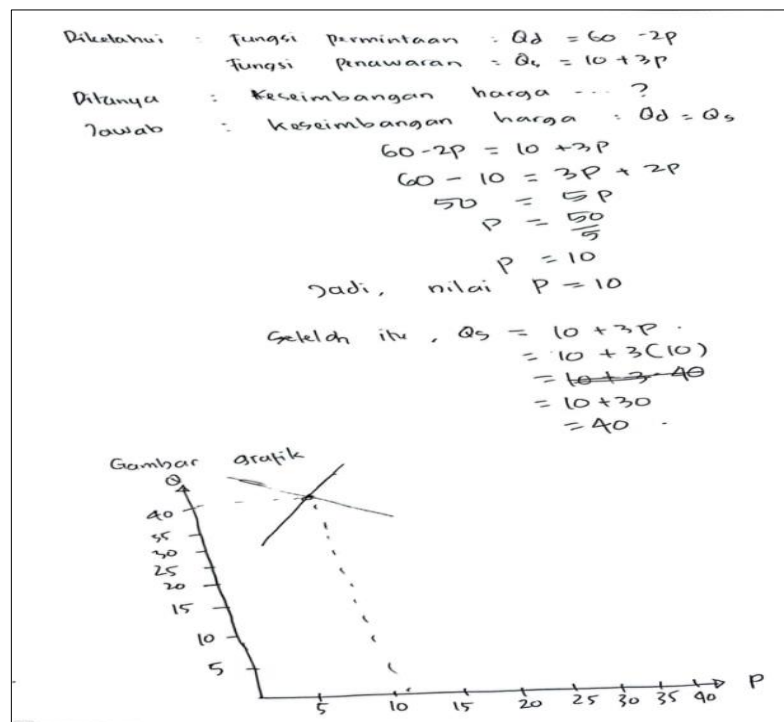 Diketahui : Fungsi permintaan : Qd = 60 - 2p
Fungsi Penawaran : Qs = 10 + 3p
Ditanya : Keseimbangan harga ... ?
Jawab : Keseimbangan harga : Qd = Qs
60 - 2p = 10 + 3p
60 - 10 = 3p + 2p
50 = 5p
p = 50/5
p = 10
Jadi, nilai p = 10
Setelah itu, Qs = 10 + 3p.
= 10 + 3(10)
= 10 + 3 40
= 10 + 30
= 40.
Gambar grafik
Q
40
35
30
25
20
15
10
5
5 10 15 20 25 30 35 40 P